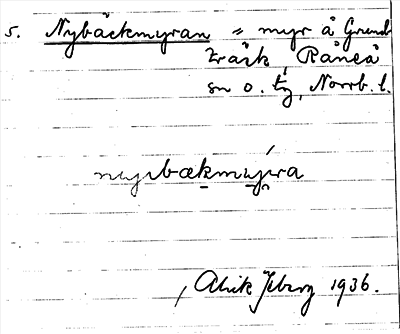 5. Nybäckmyran = myr å Grund-
träsk, Råneå
sn o. tg, Norrb. l.
nybækmyra
Alrik Jeberg 1936.